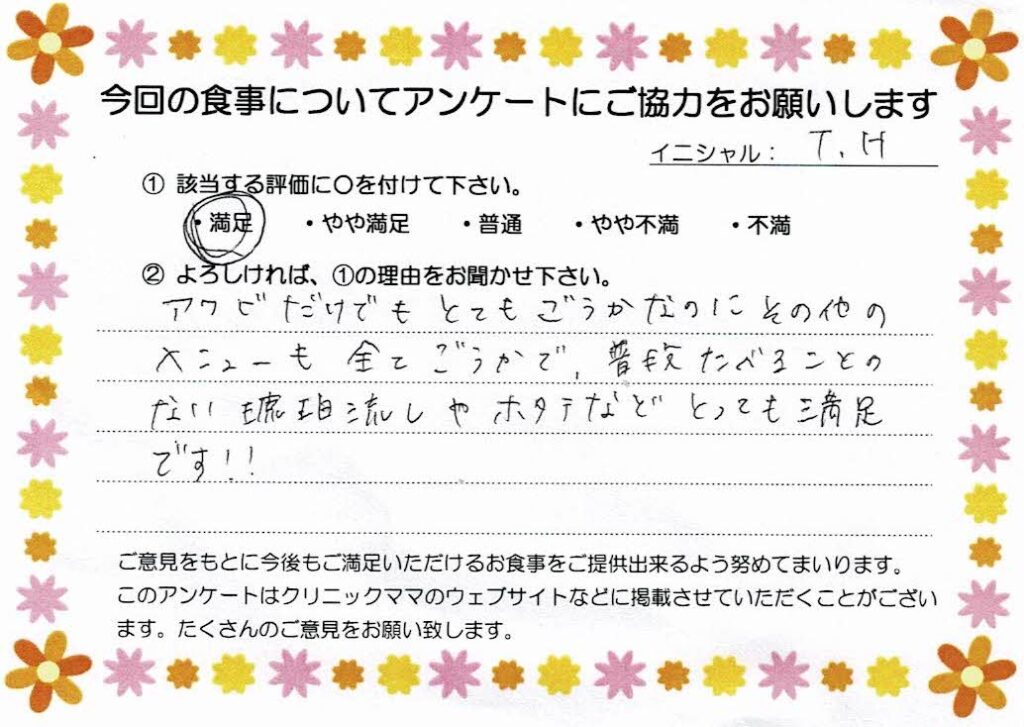 今回の食事についてアンケートにご協力をお願いします
イニシャル： T.H
① 該当する評価に〇を付けて下さい。
・満足 ・やや満足 ・普通 ・やや不満 ・不満
② よろしければ、①の理由をお聞かせ下さい。
アワビだけでもとてもごうかなのにその他の
メニューも全てごうかで、普段たべることの
ない琥珀流しやホタテなどとっても満足
です!!
ご意見をもとに今後もご満足いただけるお食事をご提供出来るよう努めてまいります。
このアンケートはクリニックママのウェブサイトなどに掲載させていただくことがござい
ます。たくさんのご意見をお願い致します。